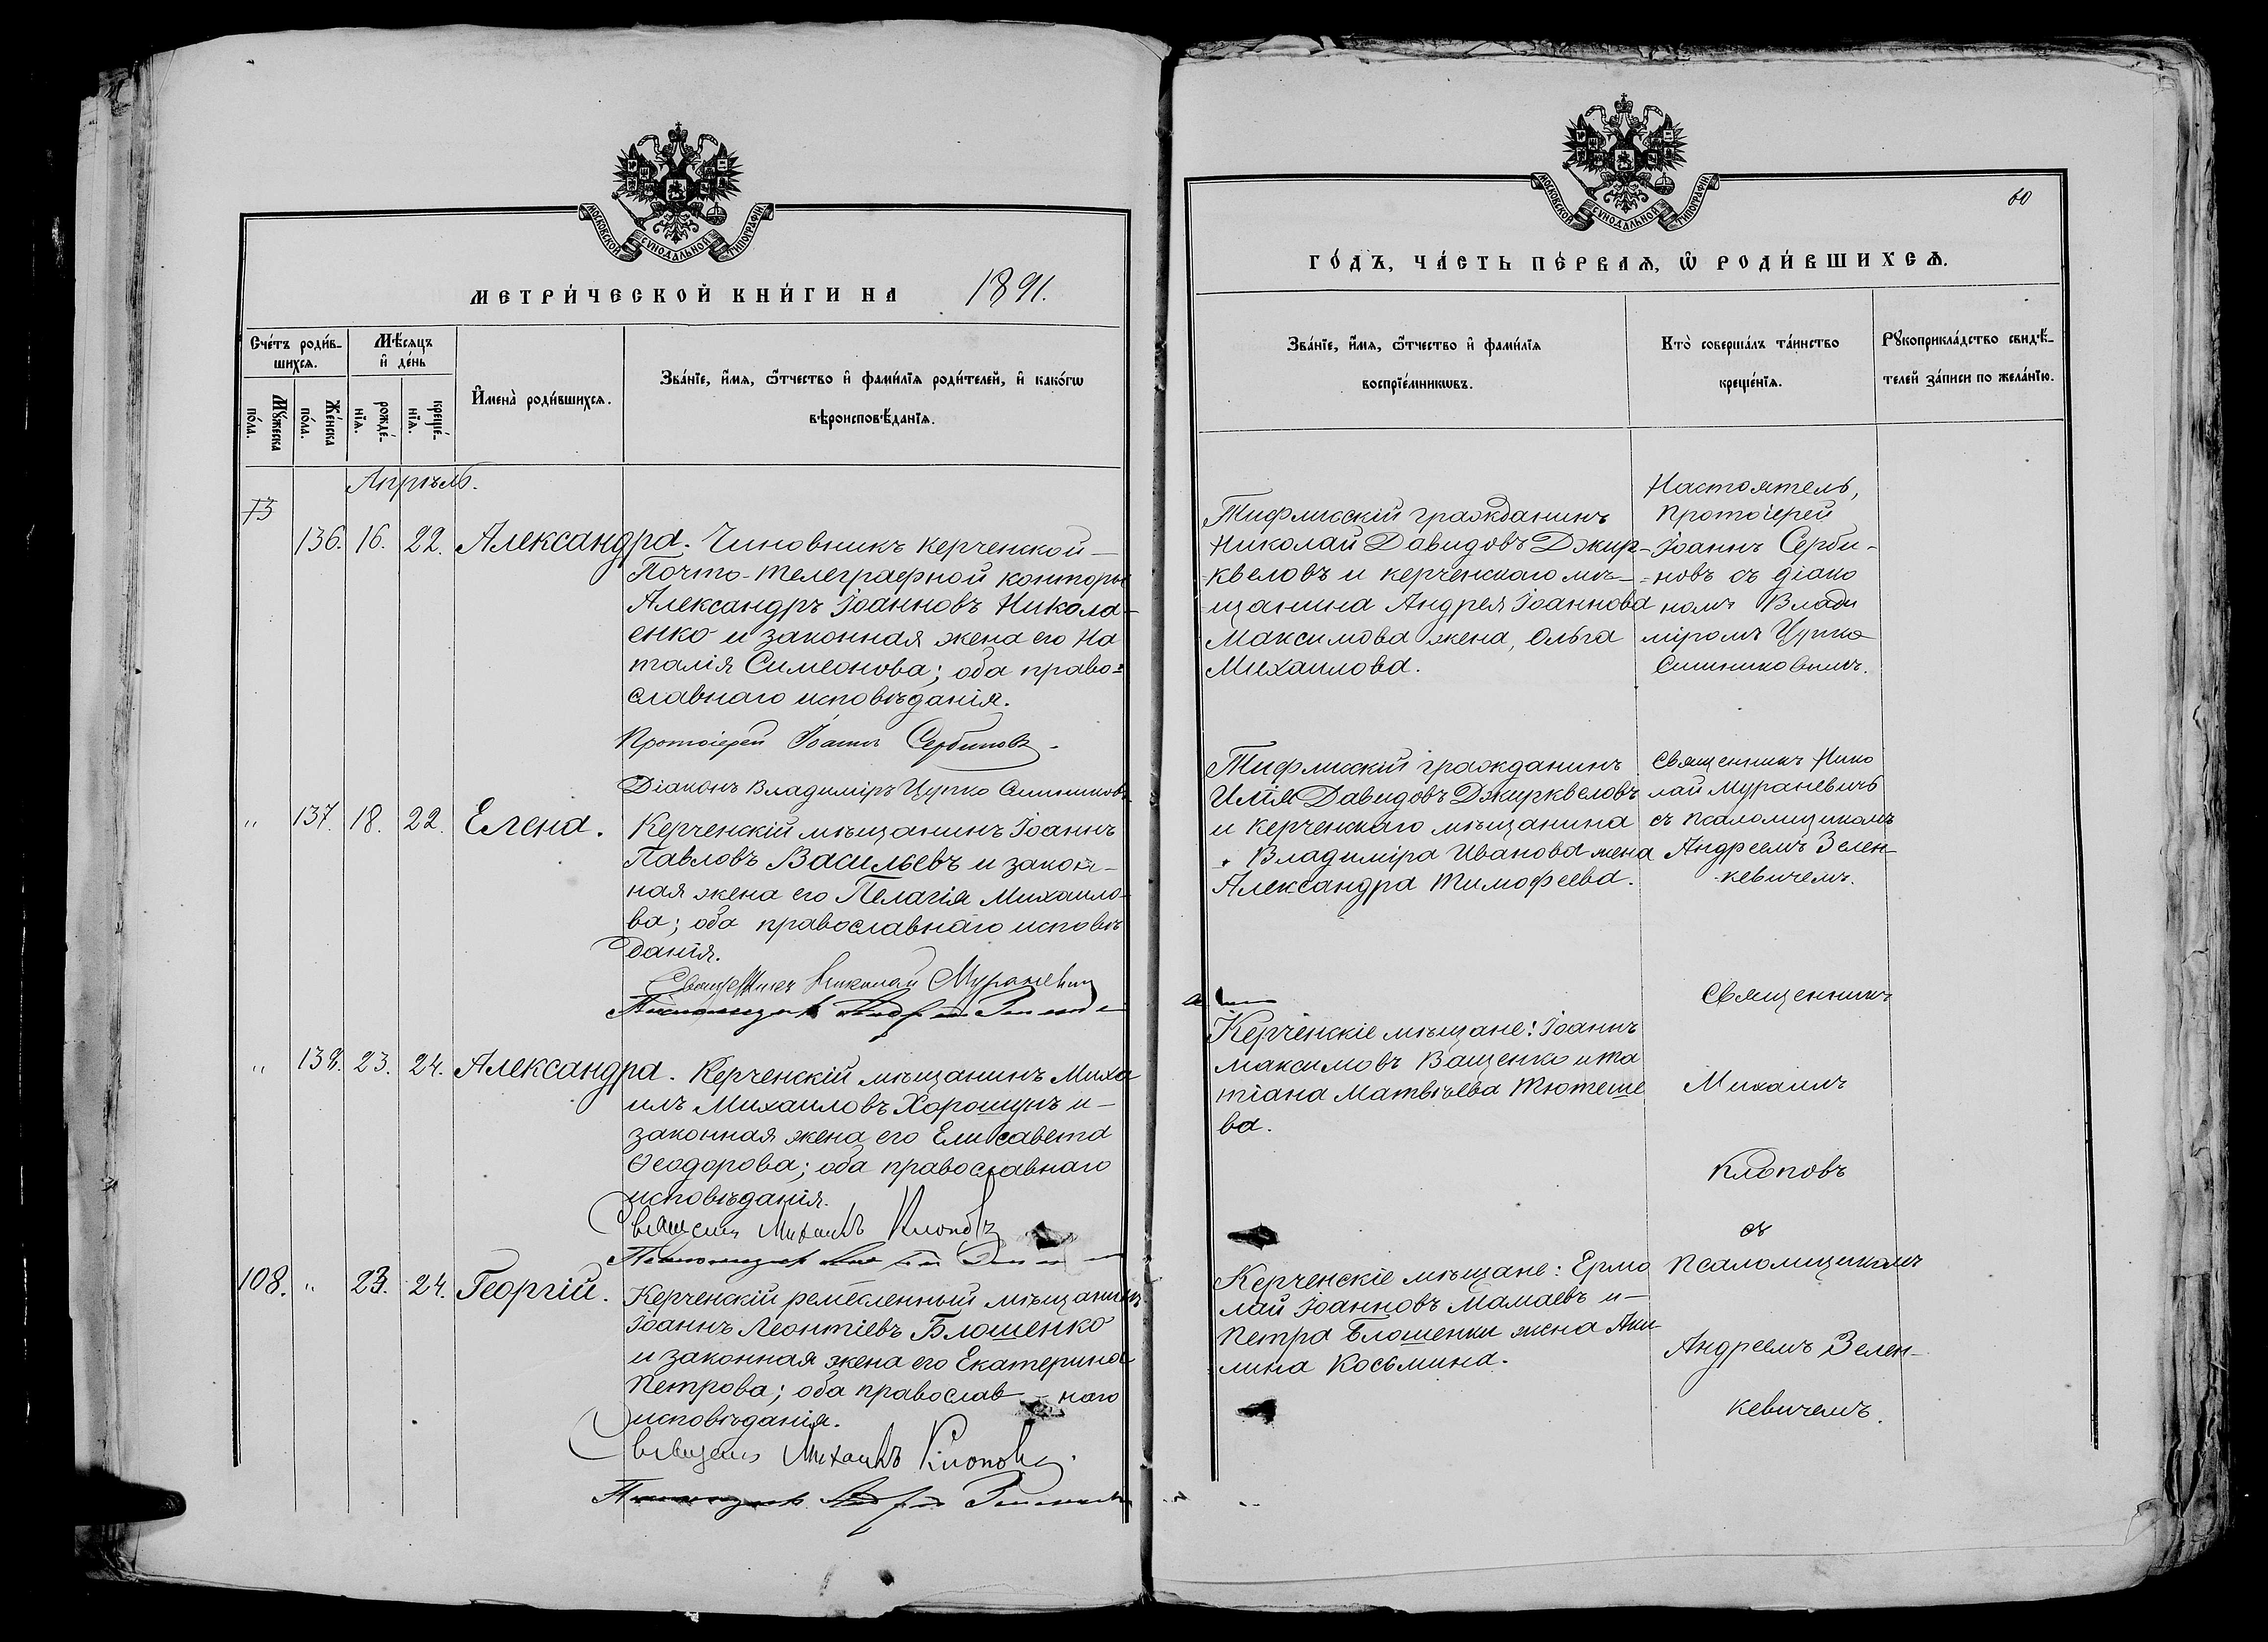 МОСКОВСКОЙ СѴНОДАЛЬНОЙ ТИПОГРАФІИ.
МЕТРИ́ЧЕСКОЙ КНИ́ГИ НА 1891.
Сче́тъ роди́в-
шихсѧ.
Мꙋ́жеска
по́ла.
Же́нска
по́ла.
Мѣ́сѧцъ
и҆ де́нь
рожде́-
нїѧ.
креще́-
нїѧ.
И҆мена̀ роди́вшихсѧ.
Зва́нїе, и҆́мѧ, ѻ҆́тчество и҆ фами́лїѧ роди́телей, и҆ како́гѡ
вѣроисповѣ́данїѧ.
Апрѣль.
73
136. 16. 22. Александра. Чиновникъ Керченской
Почто-телеграфной конторы
Александръ Іоанновъ Никола-
енко и законная жена его На
талія Симеонова; оба право=
славнаго исповѣданія.
Протоіерей Іоаннъ Сербиновъ.
Діаконъ Владиміръ Цупко
" 137. 18. 22. Елена. Керченскій мѣщанинъ Іоаннъ
Павловъ Васильевъ и закон-
ная жена его Пелагія Михаило-
ва; оба православнаго исповѣ
данія.
Священникъ Николай Мураневичъ
Псаломщикъ Андрей
" 138. 23. 24. Александра. Керченскій мѣщанинъ Миха
илъ Михаиловъ Хорошунъ и-
законная жена его Елисавета
Ѳеодорова; оба православнаго
исповѣданія.
Священ Михаилъ Клоповъ
Псаломщикъ
108. " 23. 24. Георгій. Керченскій ремесленный мѣщанинъ
Іоаннъ Леонтіевъ Блошенко
и законная жена его Екатерина
Петрова; оба православ-наго
исповѣданія.
Священ Михаилъ Клоповъ.
Псаломщикъ Андрей
60
МОСКОВСКОЙ СѴНОДАЛЬНОЙ ТИПОГРАФІИ.
ГО́ДЪ, ЧА́СТЬ ПЕ́РВАѦ, Ѡ҆ РОДИ́ВШИХСѦ.
Зва́нїе, и҆́мѧ, ѻ҆́тчество и҆ фами́лїѧ
воспрїе́мникѡвъ.
Кто̀ соверша́лъ та́инство
креще́нїѧ.
Рꙋкоприкла́дство свидѣ́-
телей за́писи по жела́нїю.
Тифлисскій гражданинъ
Николай Давидовъ Джир-
квеловъ и керченскаго мѣ-
щанина Андрея Іоаннова
Максимова жена, Ольга
Михаилова.
Настоятель,
Протоіерей
Іоаннъ Серби-
новъ съ діако
номъ Влади
міромъ Цупко
Тифлисскій гражданинъ
Илія Давидовъ Джирквеловъ
и керченскаго мѣщанина
Владиміра Иванова жена
Александра Тимофеева.
Священникъ Нико
лай Мураневичъ
съ псаломщикомъ
Андреемъ Зелен-
кевичемъ.
Керченскіе мѣщане: Іоаннъ
Максимовъ Ващенко и Та
тіана Матвѣева Тютеше
ва.
Священникъ
Михаилъ
Клоповъ
съ
Керченскіе мѣщане: Ермо
лай Іоанновъ Мамаевъ и-
Петра Блошенки жена Аки-
лина Косьмина.
Псаломщикомъ
Андреемъ Зелен-
кевичемъ.